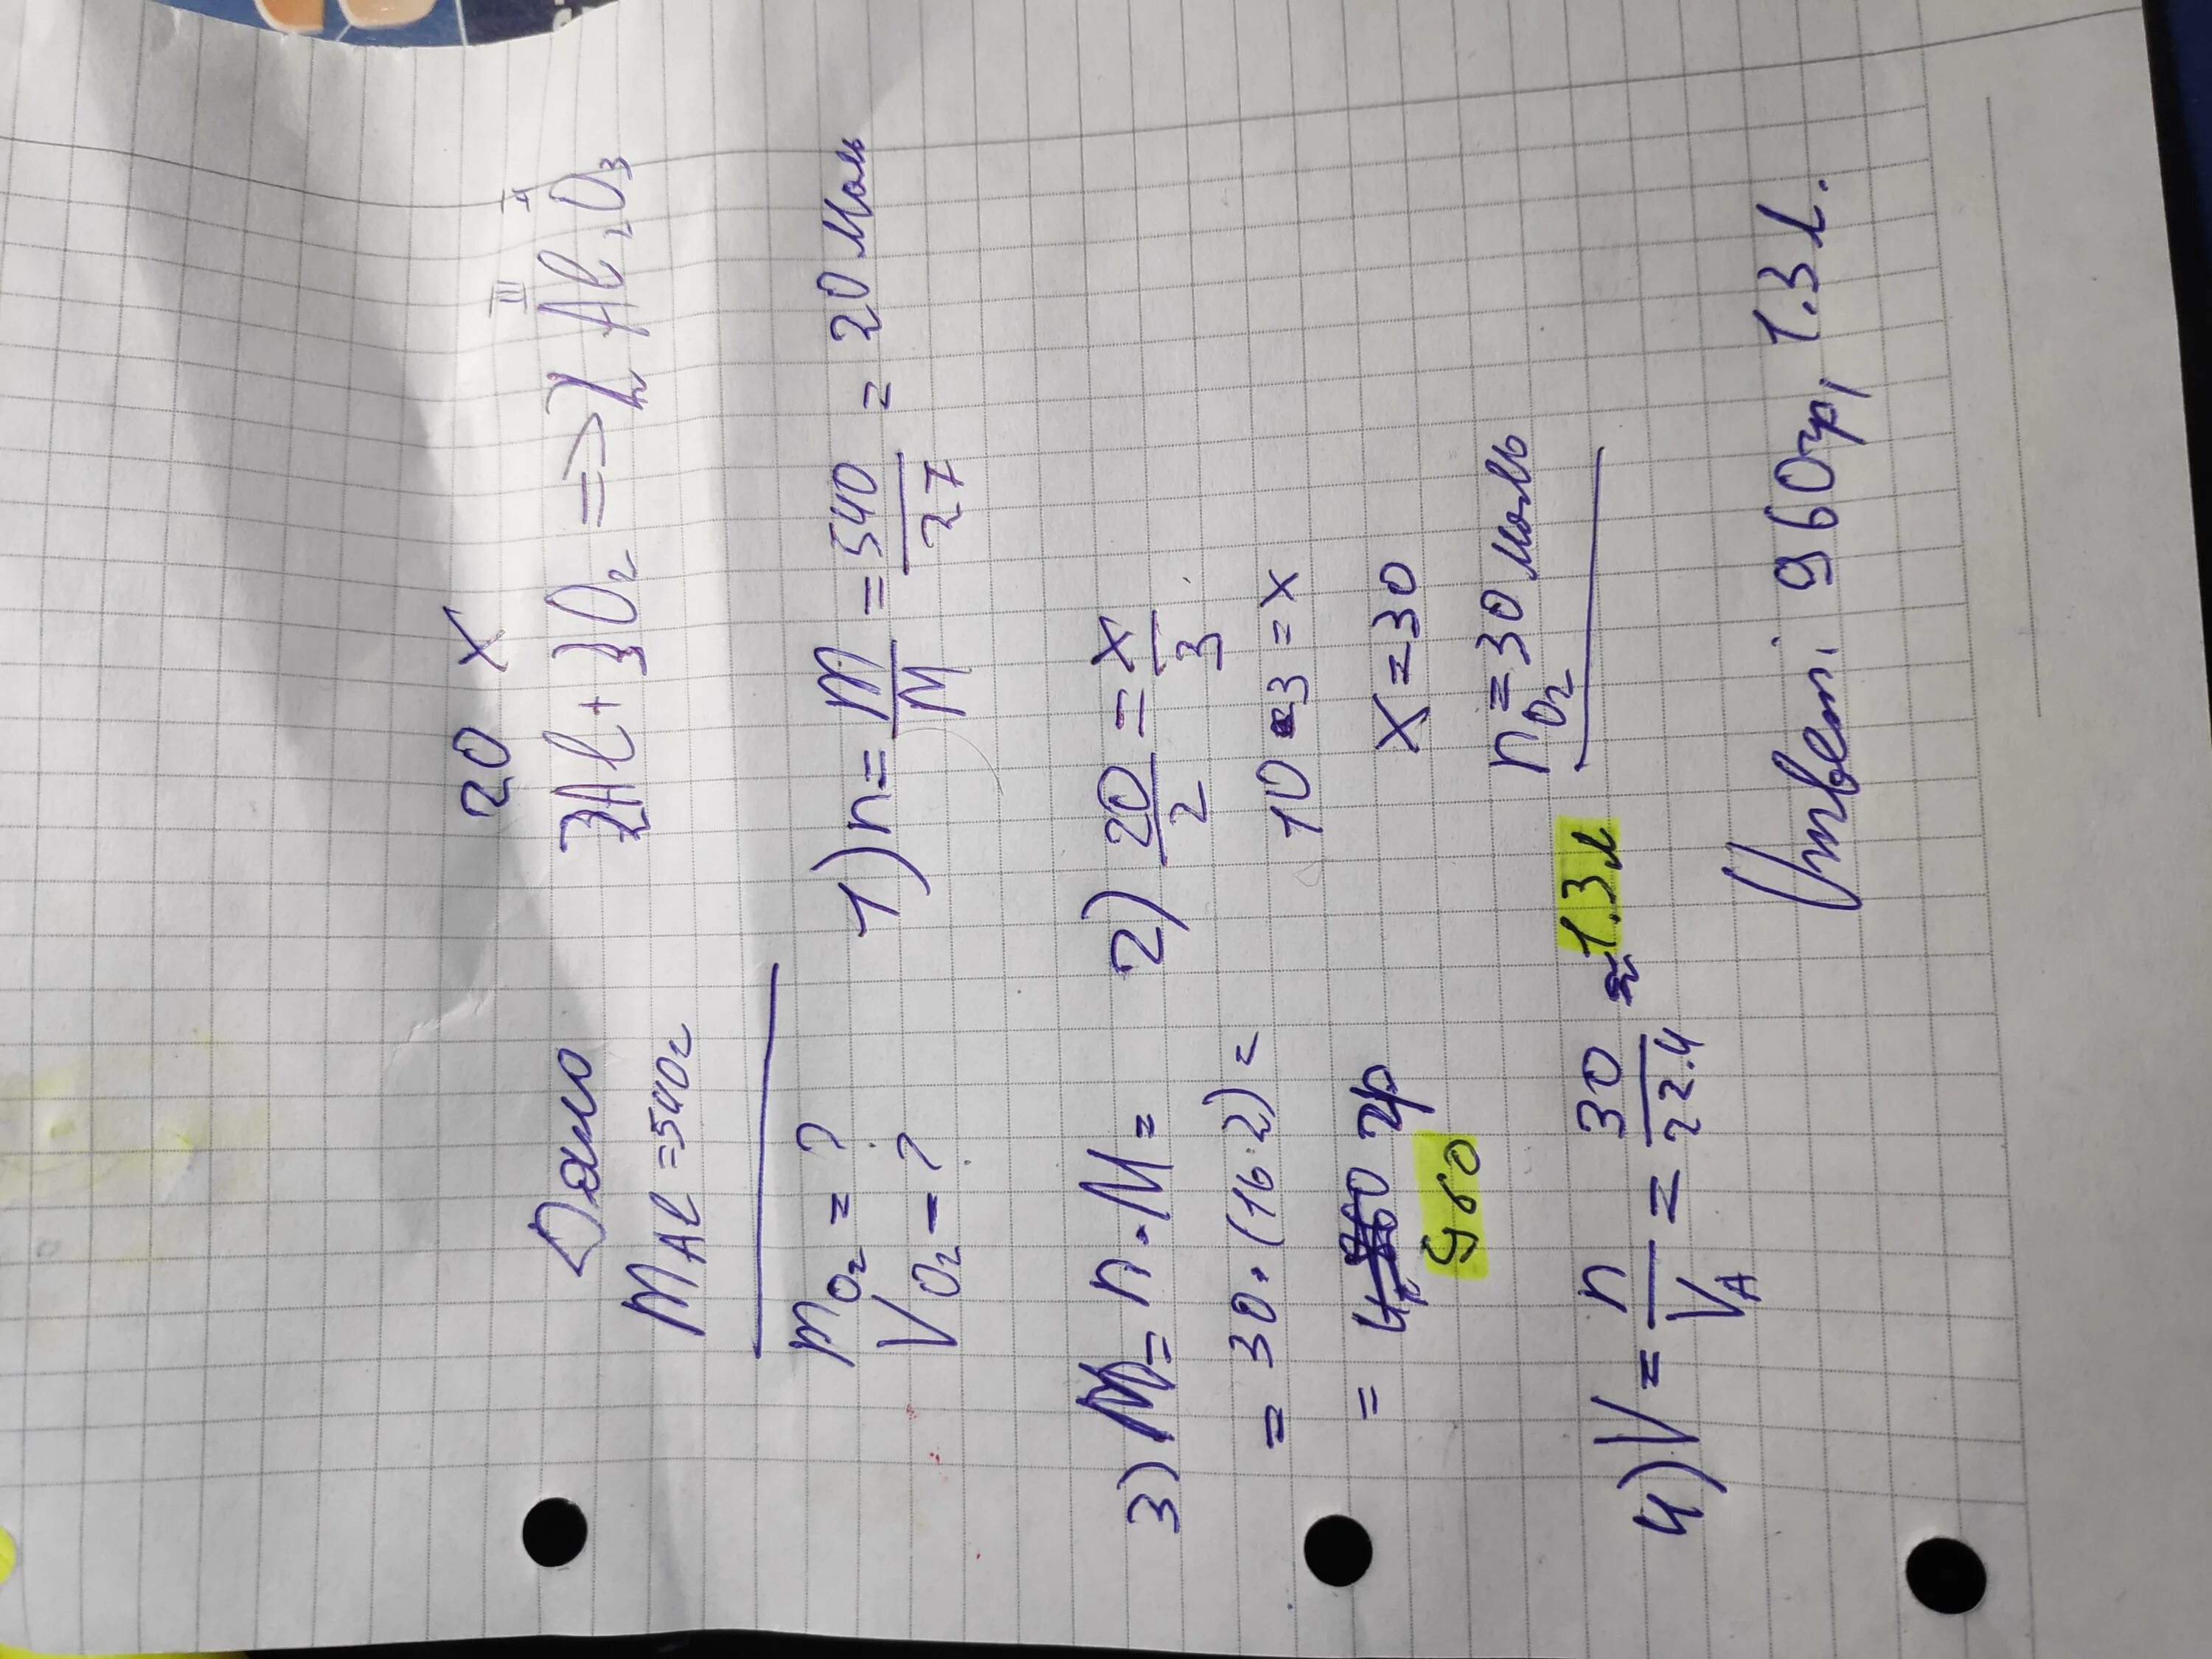 Дано
m Al = 540г
m O₂ = ?
V O₂ - ?
20 X
2Al + 3O₂ => 2 Al₂O₃
III II
1) n = m/M = 540/27 = 20 моль
2) 20/2 = X/3
10 · 3 = X
X = 30
n O₂ = 30 моль
3) M = n · M =
= 30 · (16·2) =
= гр
960
4) V = n/V_A = 30/22.4 ≈ 1.3 л
Ответ: 960гр, 1.3 л.